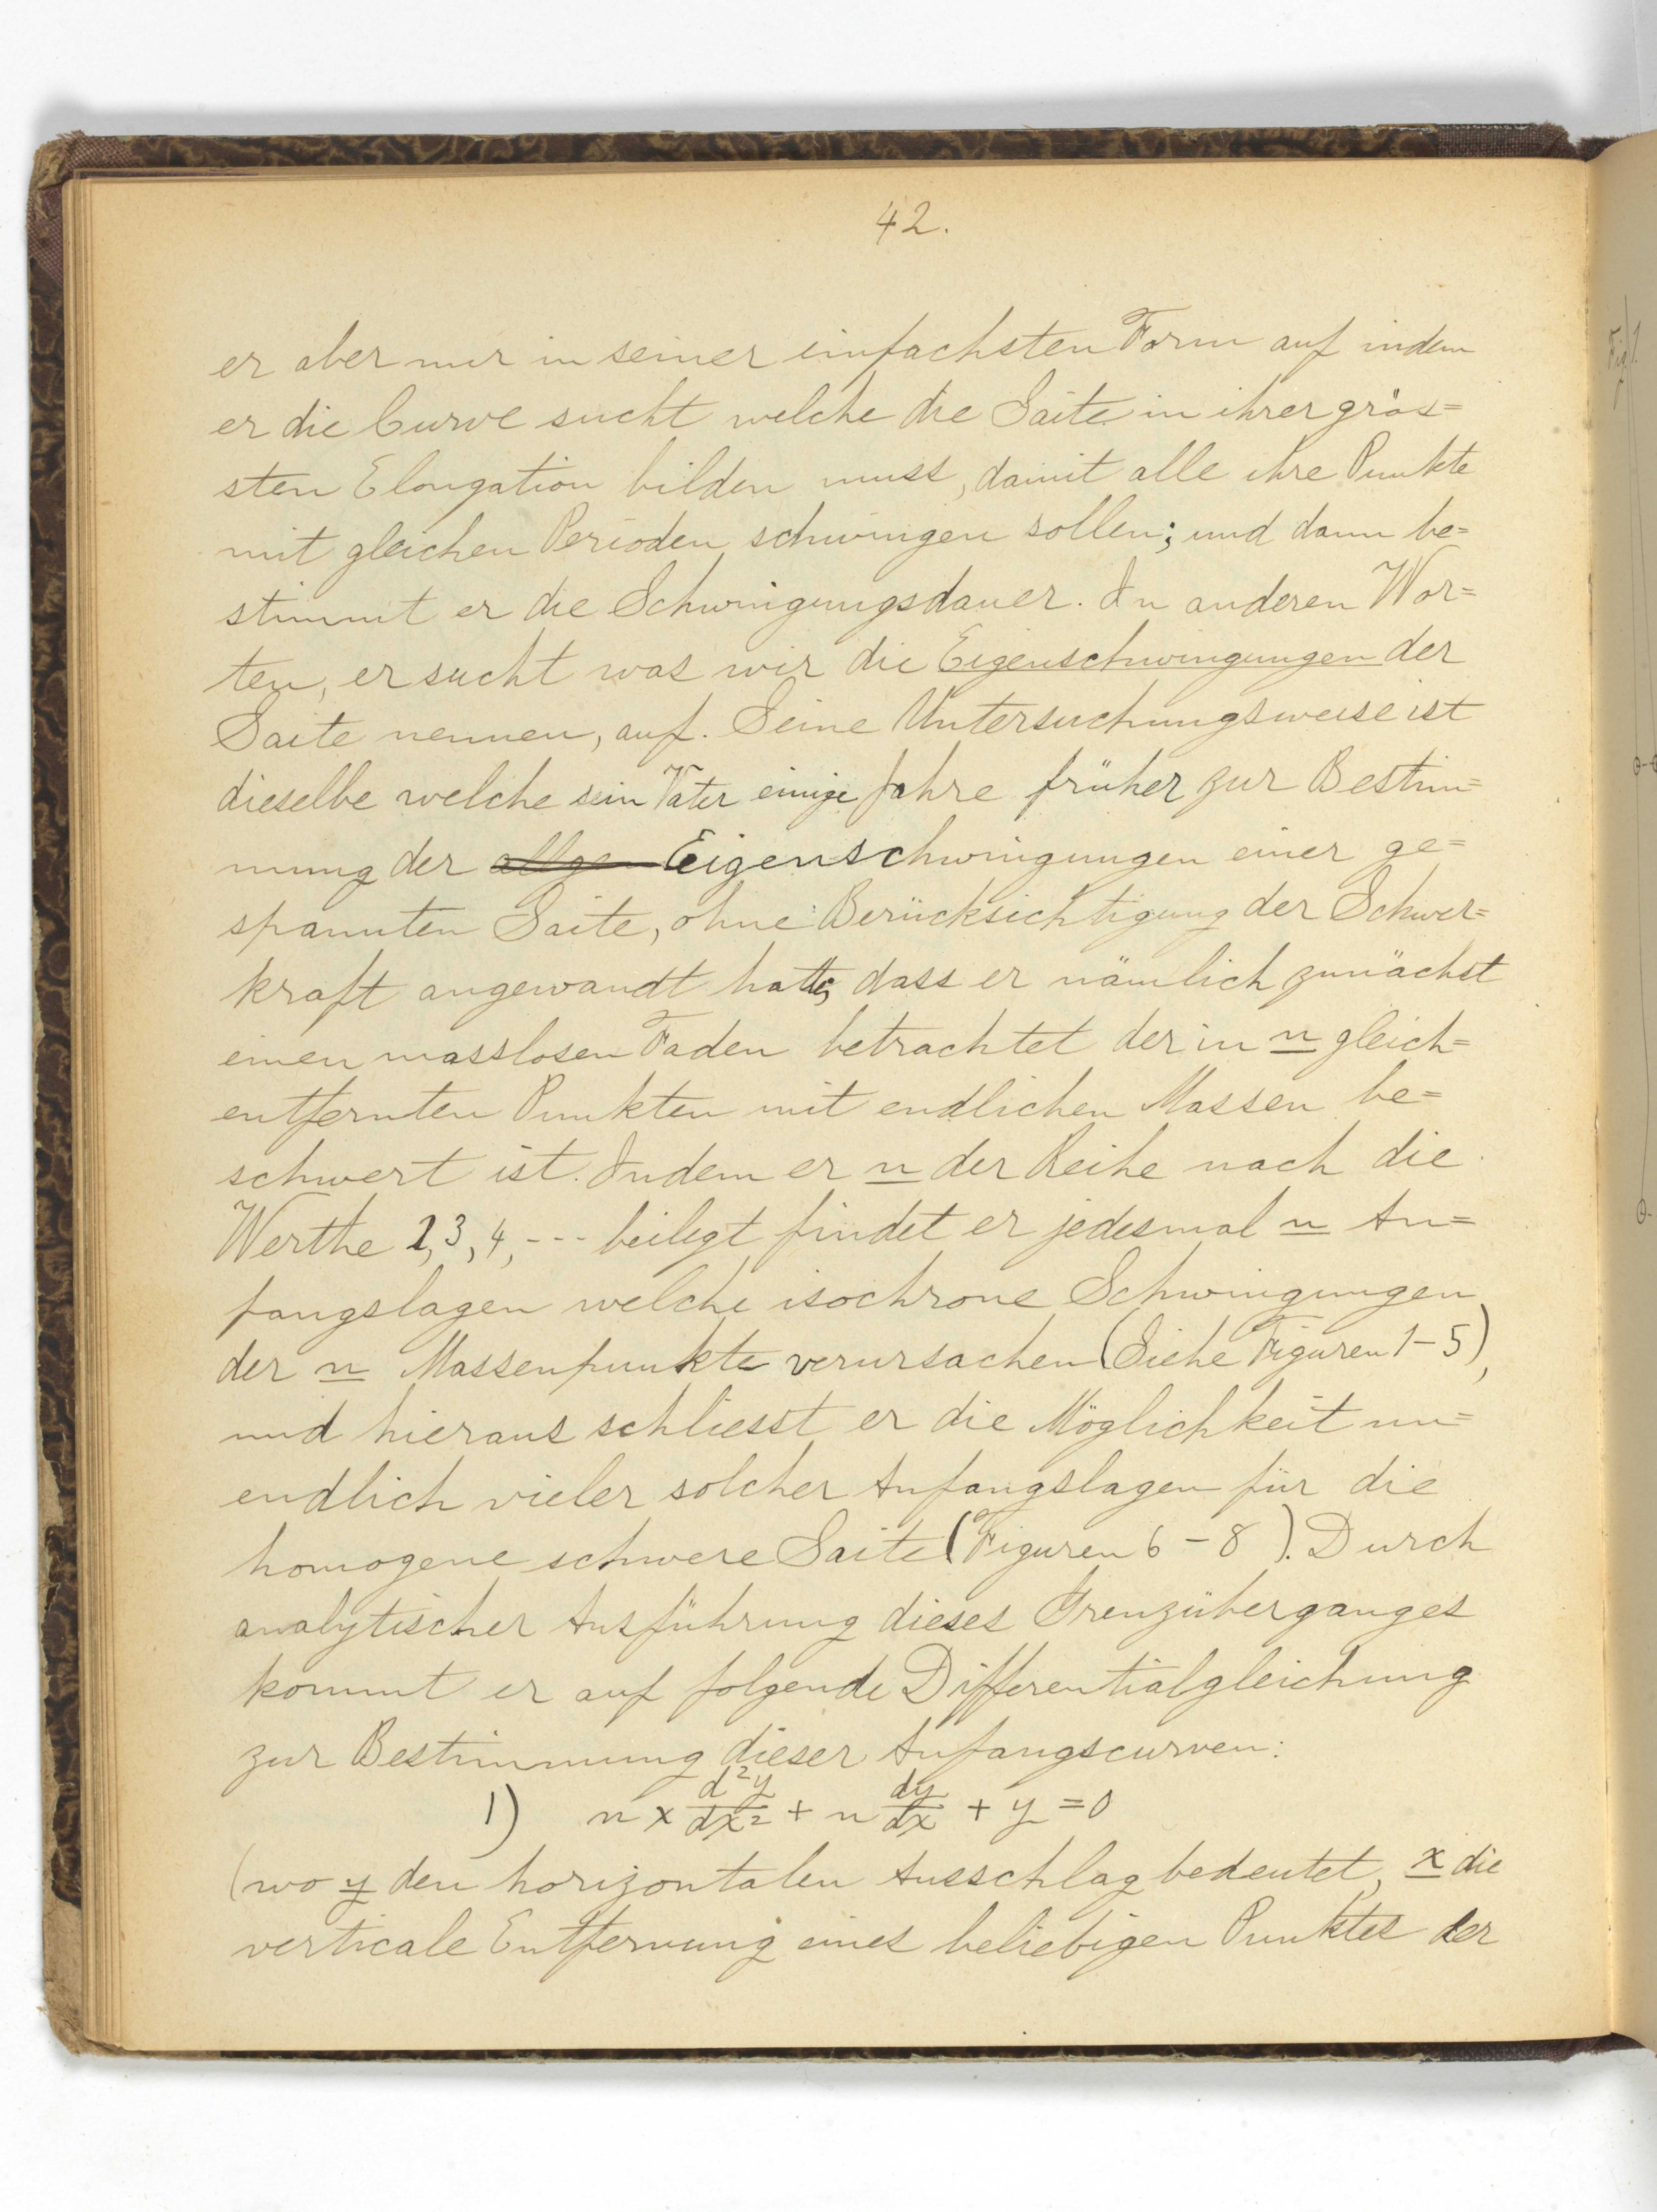 42.
er aber nur in seiner einfachsten Form auf indem
er die Curve sucht welche die Saite in ihrer grös=
sten Elongation bilden muss, damit alle ihre Punkte
mit gleichen Perioden schwingen sollen; und dann be=
stimmt er die Schwingungsdauer. In anderen Wor=
ten, er sucht was wir die Eigenschwingungen der
Saite nennen, auf. Seine Untersuchungsweise ist
dieselbe welche sein Vater einige Jahre früher zur Bestim=
mung der allge Eigenschwingungen einer ge=
spannten Saite, ohne Berücksichtigung der Schwer=
kraft angewandt hatte, dass er nämlich zunächst
einen masslosen Faden betrachtet der in n gleich=
entfernten Punkten mit endlichen Massen be=
schwert ist. Indem er n der Reihe nach die
Werthe 2, 3, 4, --- beilegt findet er jedesmal n An=
fangslagen welche isochrone Schwingungen
der n Massenpunkte verursachen (Siehe Figuren 1-5),
und hieraus schliesst er die Möglichkeit un=
endlich vieler solcher Anfangslagen für die
homogene schwere Saite (Figuren 6-8). Durch
analytischer Ausführung dieses Grenzüberganges
kommt er auf folgende Differentialgleichung
zur Bestimmung dieser Anfangscurven:
1) n x d²y/dx² + n dy/dx + y = 0
(wo y den horizontalen Ausschlag bedeutet, x die
verticale Entfernung eines beliebigen Punktes der
Fig 1.